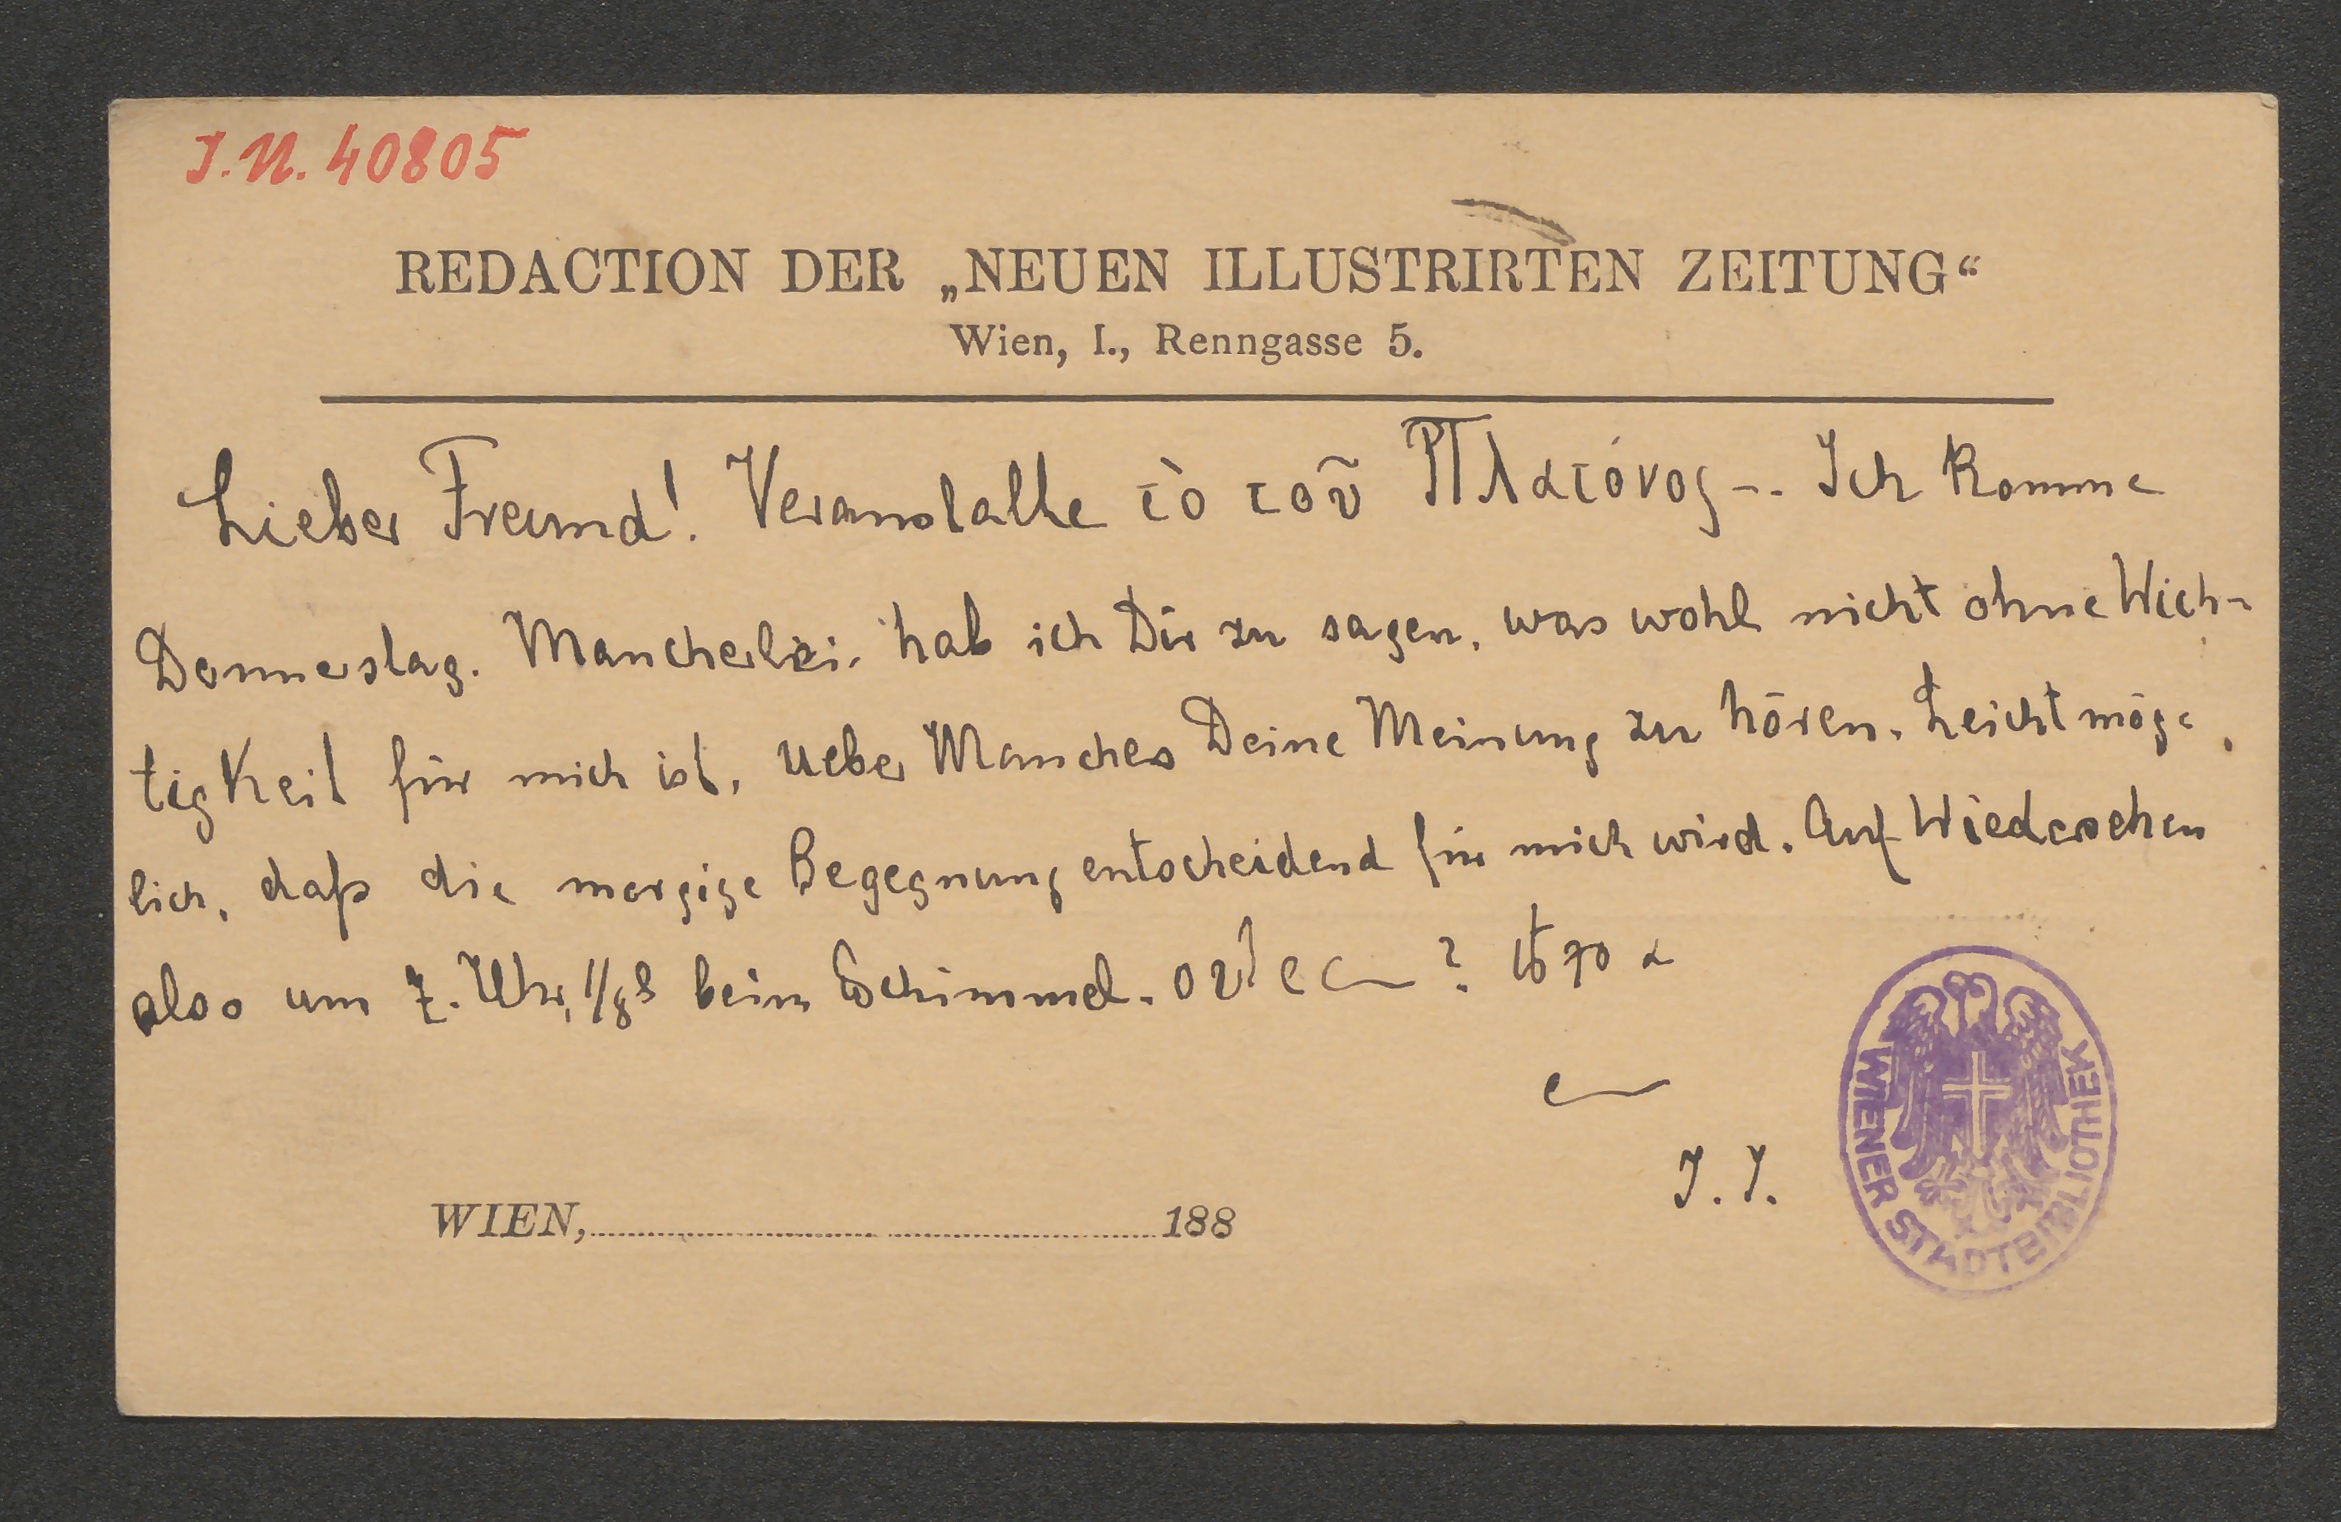 J.N. 40805
REDACTION DER „NEUEN ILLUSTRIRTEN ZEITUNG“
Wien, I., Renngasse 5.
Lieber Freund! Veranstalte τὸ τοῦ Πλατόνος -.. Ich komme
Donnerstag. Mancherlei hab ich Dir zu sagen, was wohl nicht ohne Wich-
tigkeit für mich ist, Ueber Manches Deine Meinung zu hören. Leicht mög-
lich, daß die morgige Begegnung entscheidend für mich wird. Auf Wiedersehen
also um 7. Uhr, 1/28 beim Schimmel.
J. J.
WIEN, 188
WIENER STADTBIBLIOTHEK